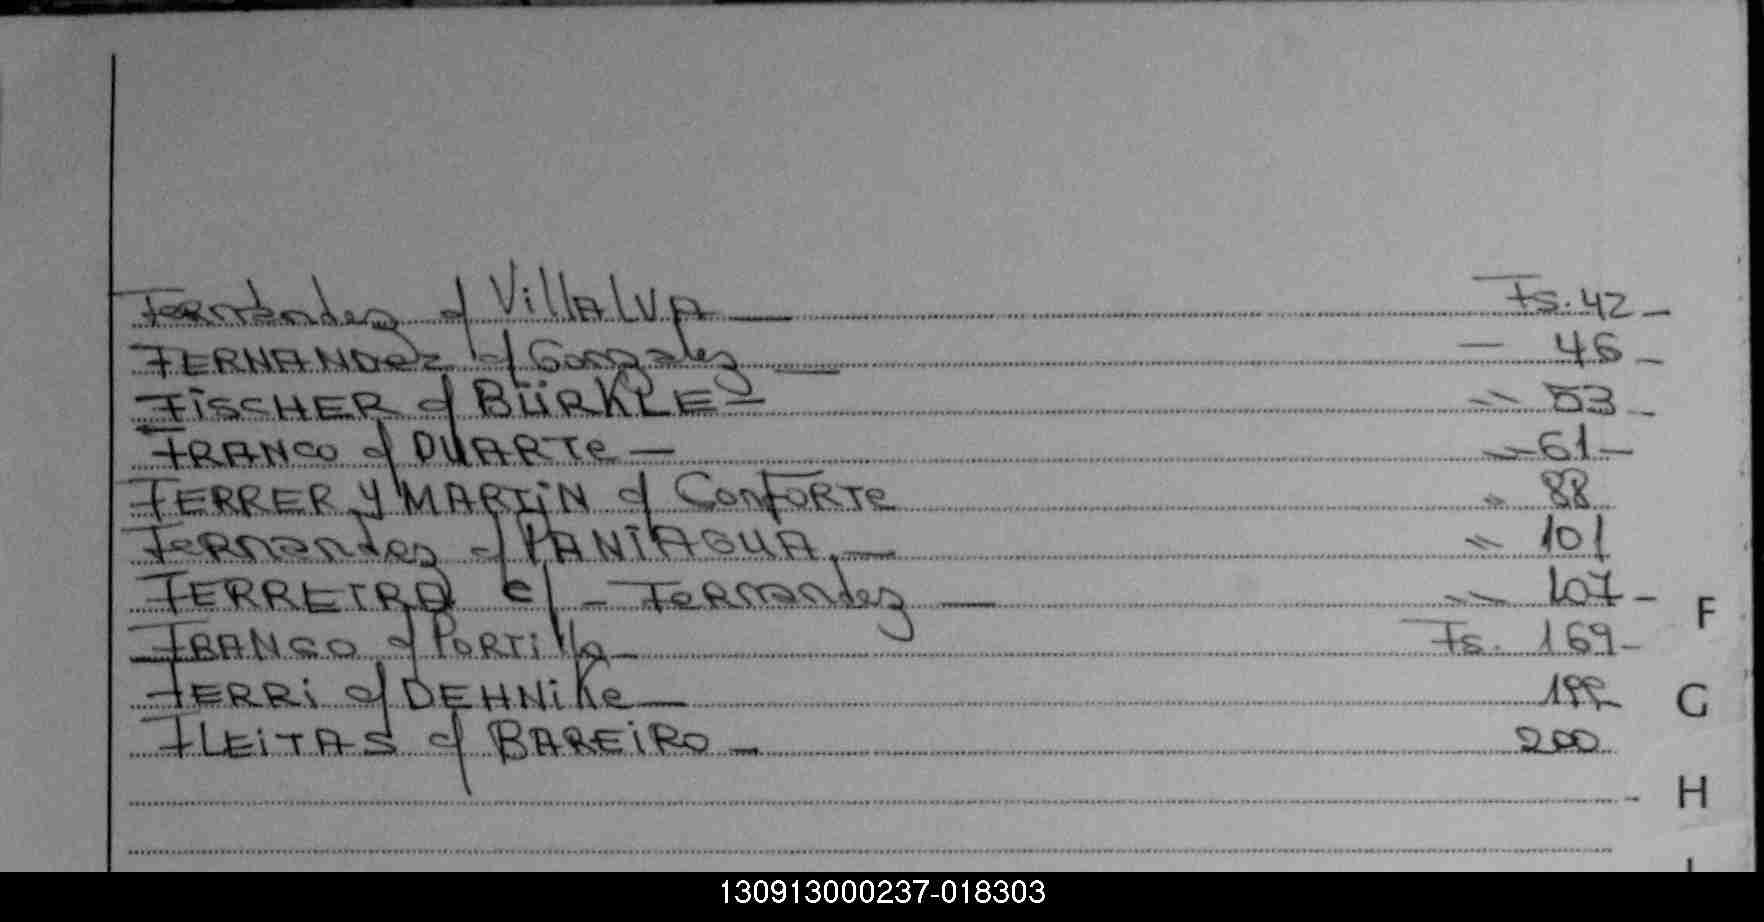 Fernández c/ VillALVA — Fs. 42 -
FERNANDez c/ Gonzalez — — 46 -
FiSCHER c/ BÜRKLE - " 53 -
FRANCO c/ DUARTe — " 61 -
FERRER y MARTIN c/ ConFORTe " 88
Fernandez c/ PANIAGUA. — " 101
FERREIRA c/ - Fernandez — " 107 -
FRANCO c/ PORTillo - Fs. 169 -
FERRi c/ DEHNiKe — 199
FLEITAS c/ BAREIRO - 200
F
G
H
130913000237-018303